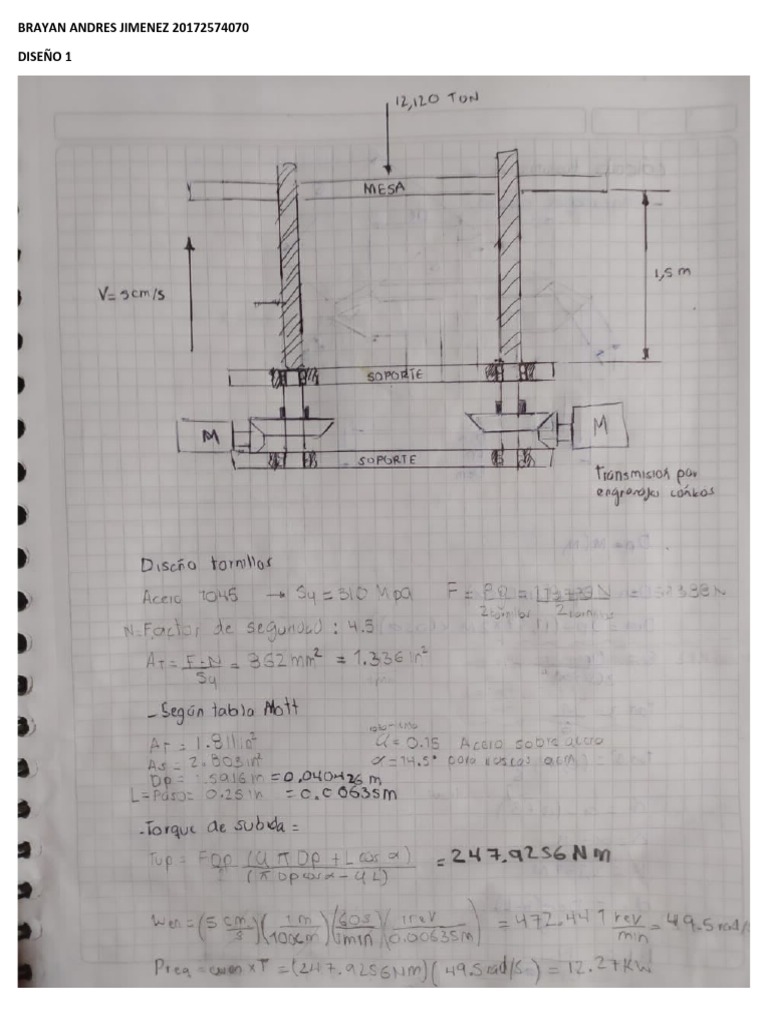 BRAYAN ANDRES JIMENEZ 20172574070
DISEÑO 1
12,120 TON
MESA
V= 5cm/s
1,5 m
SOPORTE
M
M
SOPORTE
Transmision por
engranajes conicos
Diseño tornillos
Acero 1045 → Sy = 310 Mpa F = =
2 tornillos 2 tornillos
N=Factor de seguridad : 4.5
AT = F·N / Sy = 862 mm² = 1.336 in²
- Según tabla Mott
AT = 1.811 in² u = 0.15 Acero sobre acero
As = 2.803 in² α = 14.5° para roscas acm
Dp = 1.5916 in = 0.040426 m
L = Paso = 0.25 in = 0.00635m
- Torque de subida =
Tup = FDp (u π Dp + L cos α) / (π Dp cos α - u L) = 247.9256 Nm
Wen = (5 cm/s)(1m/100cm)(60s/1min)(1rev/0.00635m) = 472.441 rev/min = 49.5 rad/s
Preq = wen x T = (247.9256 Nm)(49.5 rad/s) = 12.27 KW